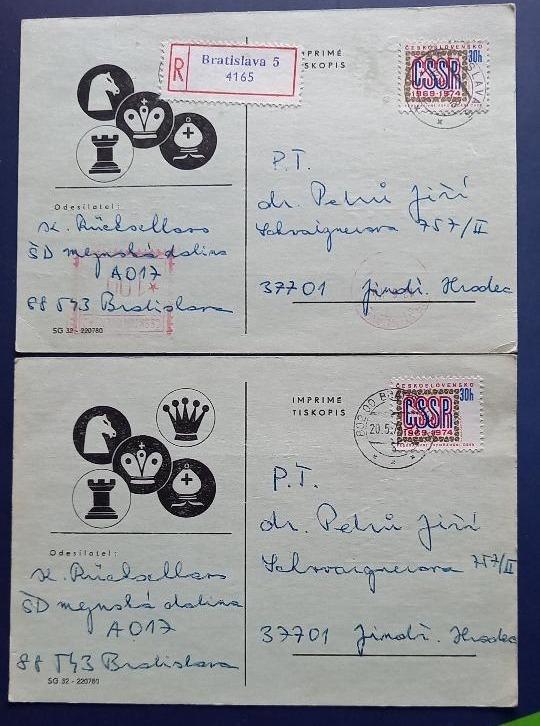 R
Bratislava 5
4165
IMPRIMÉ
TISKOPIS
ČESKOSLOVENSKO
30h
ČSSR
1969-1974
P.T.
dr. Petrů Jiří
Schwaignerova 757/II
37701 Jindř. Hradec
Odesílatel:
ŠD mlynská dolina
A017
Bratislava
SG 32 - 220780
IMPRIMÉ
TISKOPIS
ČESKOSLOVENSKO
30h
ČSSR
1969-1974
20.5.
P.T.
dr. Petrů Jiří
Schwaignerova 757/II
37701 Jindř. Hradec
Odesílatel:
ŠD mlynská dolina
A017
Bratislava
SG 32 - 220780